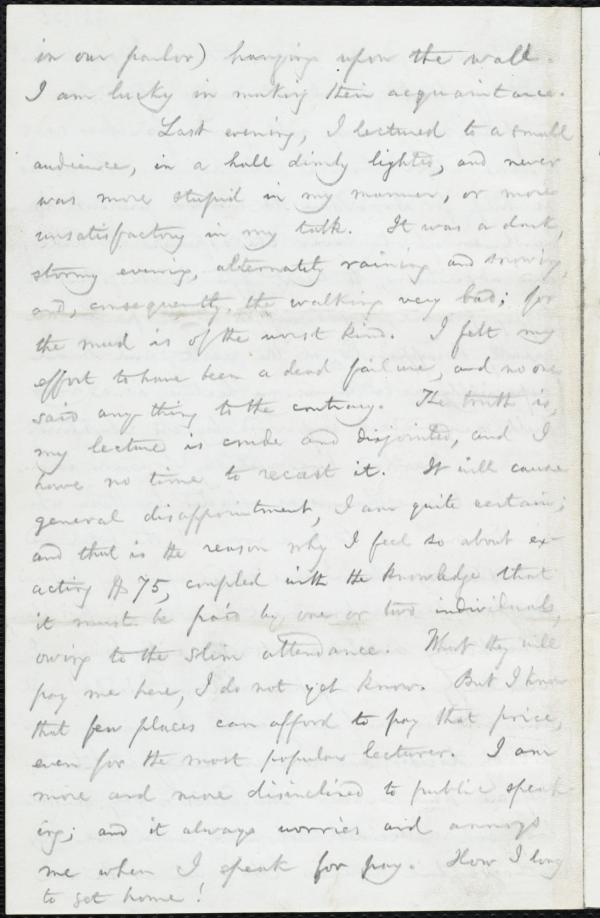 in our parlor) hanging upon the wall.
I am lucky in making their acquaintance.
Last evening, I lectured to a small
audience, in a hall dimly lighted, and never
was more stupid in my manner, or more
unsatisfactory in my talk. It was a dark,
stormy evening, alternately raining and snowing,
and, consequently, the walking very bad; for
the mud is of the worst kind. I felt my
effort to have been a dead failure, and no one
said anything to the contrary. The truth is,
my lecture is crude and disjointed, and I
have no time to recast it. It will cause
general disappointment, I am quite certain;
and that is the reason why I feel so about ex-
acting $75, coupled with the knowledge that
it must be paid by one or two individuals,
owing to the slim attendance. What they will
pay me here, I do not yet know. But I know
that few places can afford to pay that price,
even for the most popular lecturer. I am
more and more disinclined to public speak-
ing; and it always worries and annoys
me when I speak for pay. How I long
to get home!